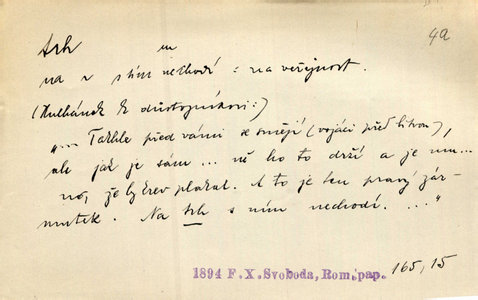 trh m 4a
na ~ s tím nechodí = na veřejnost.
(Kulhánek k důstojníkovi:)
„... Takhle před vámi se smějí (vojáci před bitvou),
ale jak je sám ... ně ho to drží a je mu ...
no, že by krev plakal. A to je ten pravý zár-
mutek. Na trh s ním nechodí. ..."
1894 F. X. Svoboda, Rom. pap. 165, 15